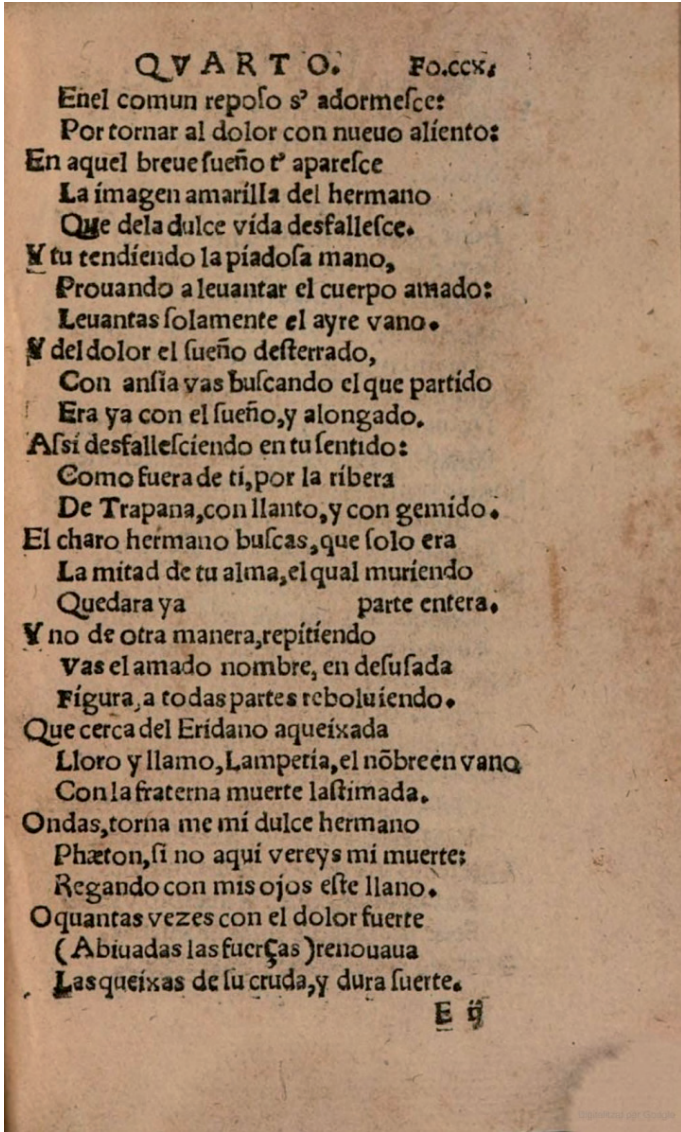 QVARTO. Fo.ccx.
Enel comun reposo s’ adormesce:
Por tornar al dolor con nueuo aliento:
En aquel breue sueño t’ aparesce
La imagen amarilla del hermano
Que dela dulce vida desfallesce.
Y tu tendiendo la piadosa mano,
Prouando a leuantar el cuerpo amado:
Leuantas solamente el ayre vano.
Y del dolor el sueño desterrado,
Con ansia vas buscando el que partido
Era ya con el sueño, y alongado.
Assi desfallesciendo en tu sentido:
Como fuera de ti, por la ribera
De Trapana, con llanto, y con gemido.
El charo hermano buscas, que solo era
La mitad de tu alma, el qual muriendo
Quedara ya parte entera.
Y no de otra manera, repitiendo
Vas el amado nombre, en desusada
Figura, a todas partes reboluiendo.
Que cerca del Eridano aqueixada
Lloro y llamo, Lampetia, el nõbre en vano
Con la fraterna muerte lastimada.
Ondas, torna me mi dulce hermano
Phæton, si no aqui vereys mi muerte:
Regando con mis ojos este llano.
O quantas vezes con el dolor fuerte
(Abiuadas las fuerças) renouaua
Las queixas de su cruda, y dura suerte.
E ij